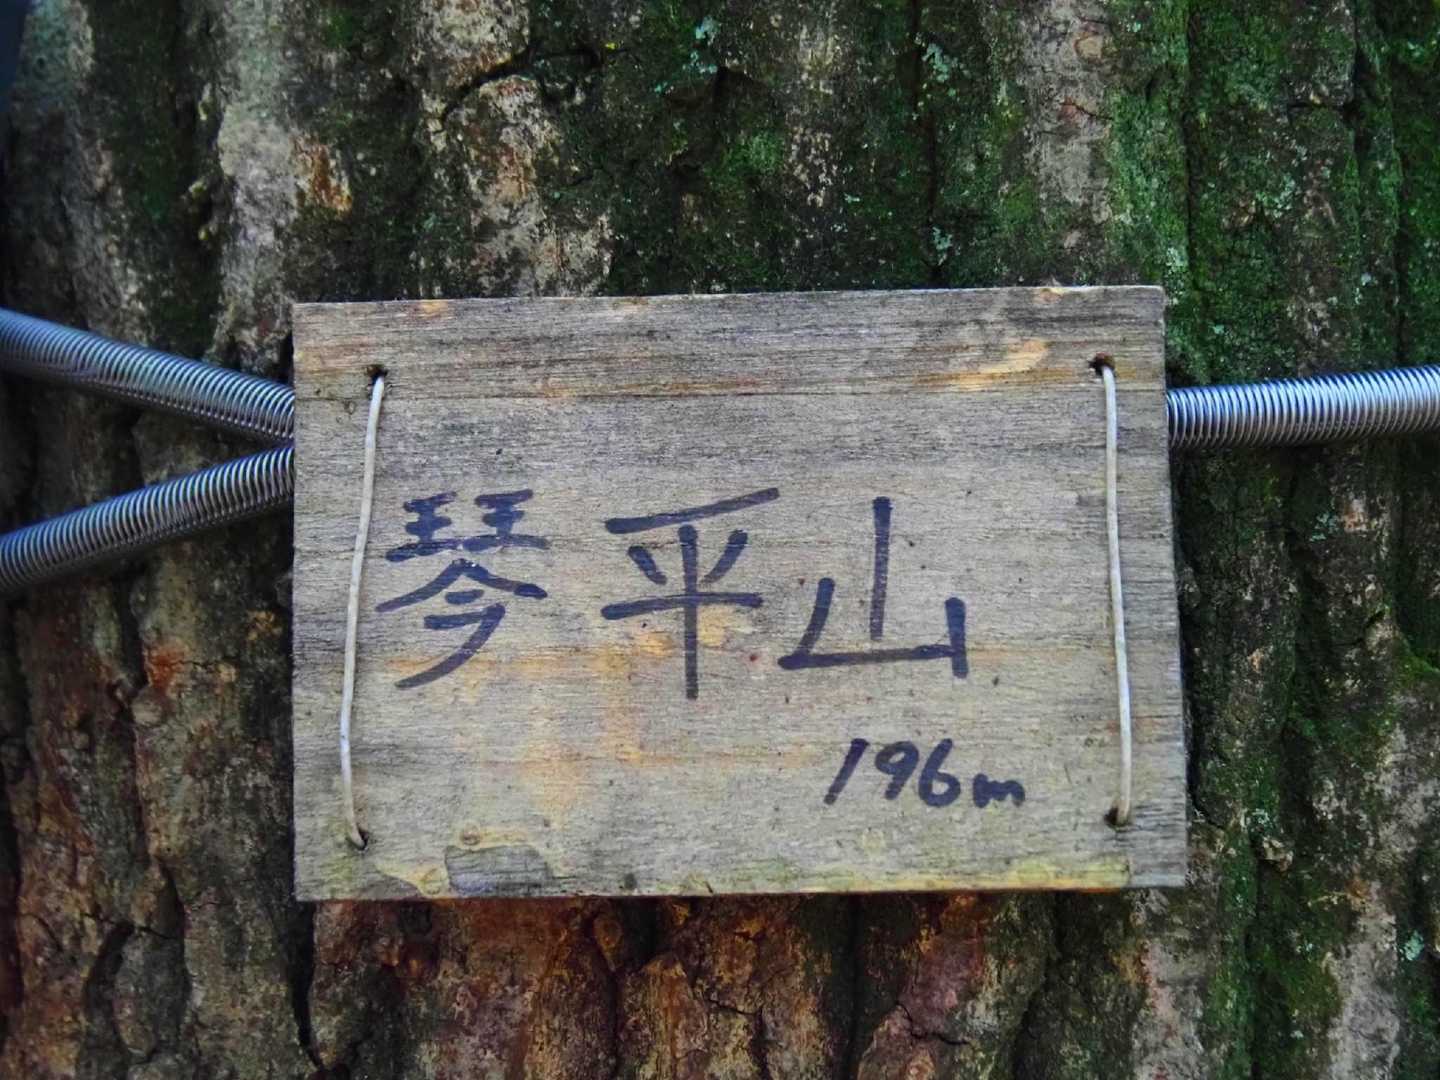 琴平山
196m